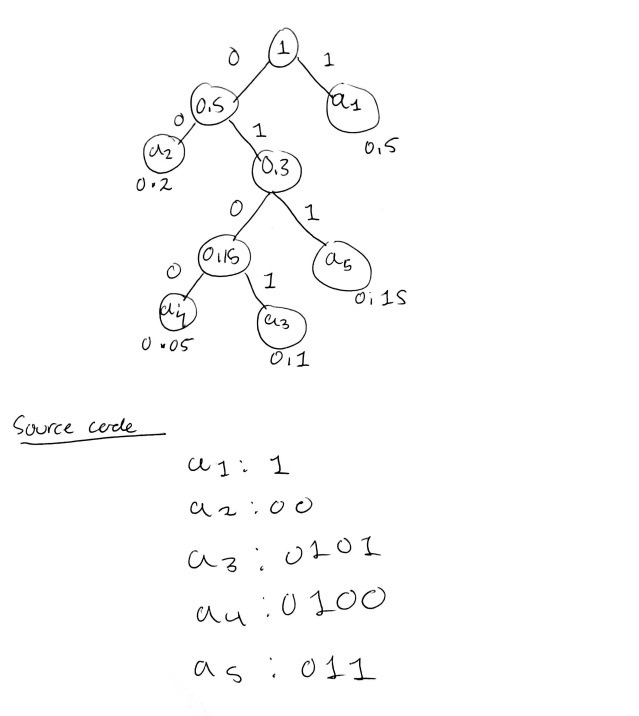 0 1 1
0.5 a1
0 1 0.5
a2 0.3
0.2
0 1
0.15 a5
0 1 0.15
a4 a3
0.05 0.1
Source code
a1: 1
a2: 00
a3: 0101
a4: 0100
a5: 011